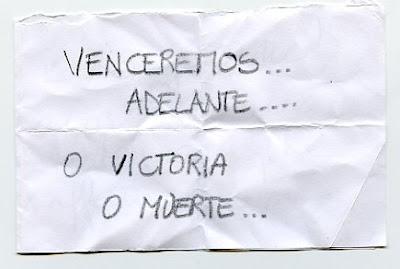 VENCEREMOS...
ADELANTE....
O VICTORIA
O MUERTE...